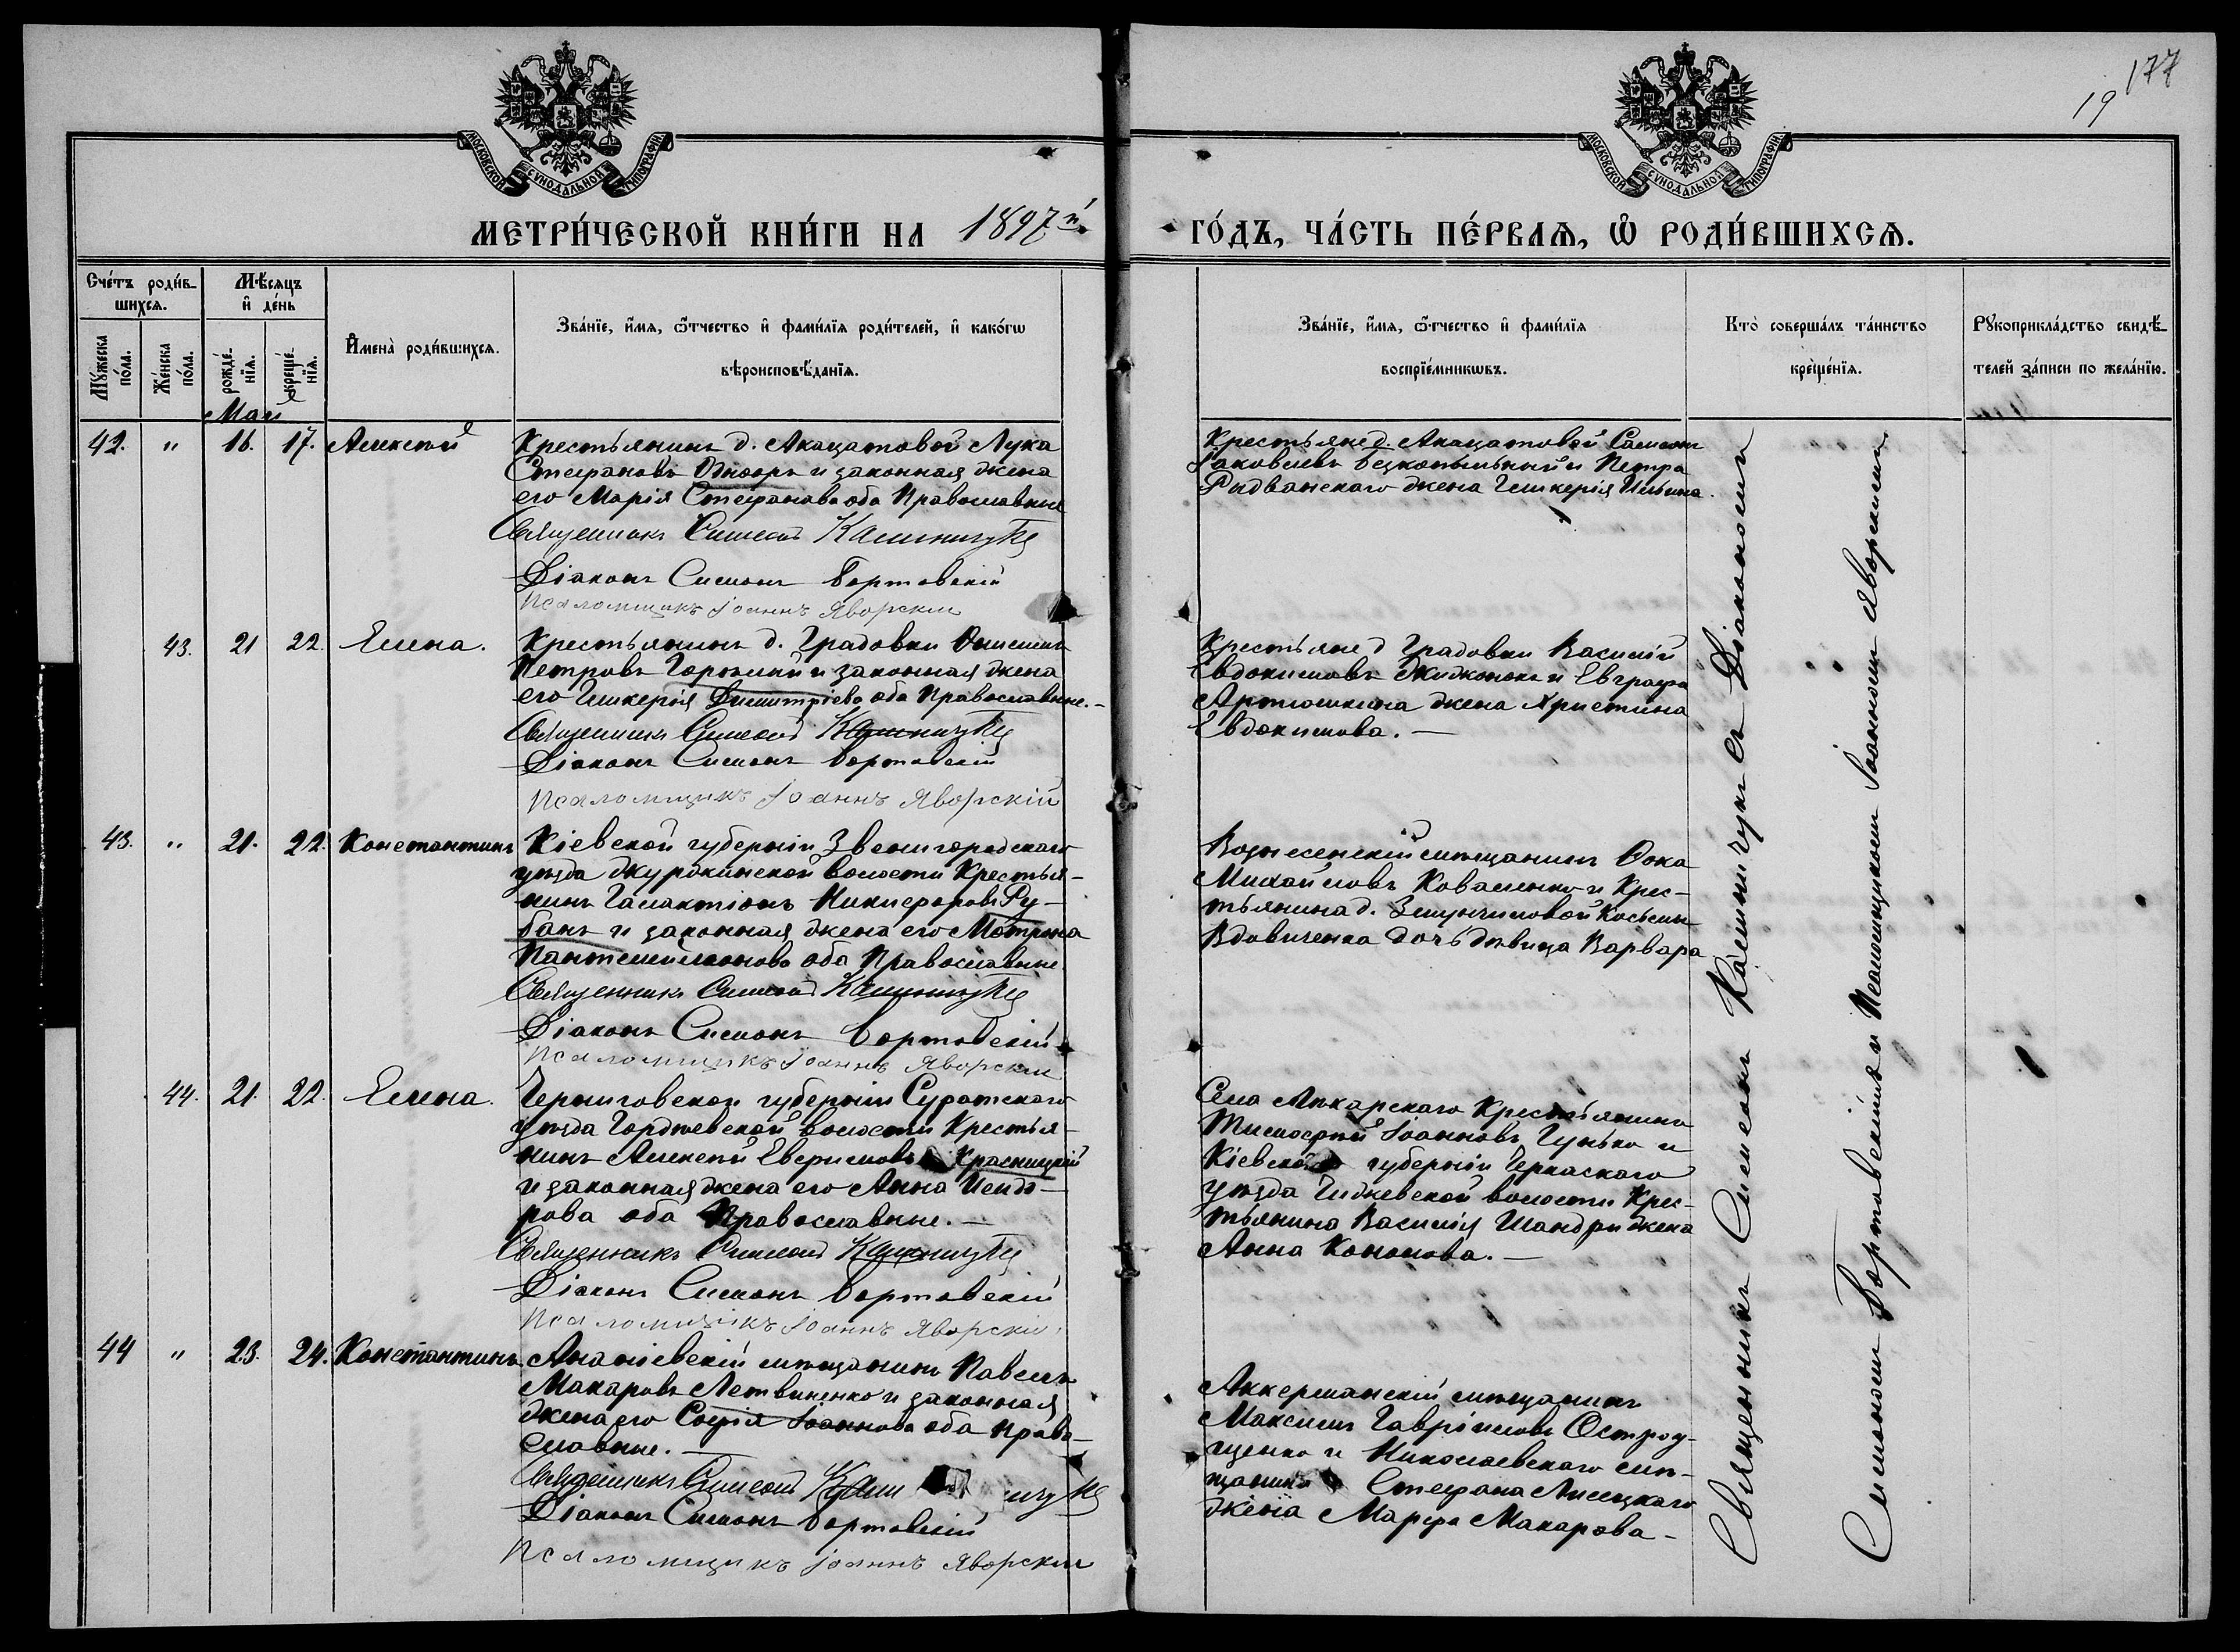 177
19
МОСКОВСКОЙ СѴНОДАЛЬНОЙ ТИПОГРАФІИ
МОСКОВСКОЙ СѴНОДАЛЬНОЙ ТИПОГРАФІИ
МЕТРИ́ЧЕСКОЙ КНИ́ГИ НА 1897й
ГО́ДЪ, ЧА́СТЬ ПЕ́РВАѦ, Ѡ РОДИ́ВШИХСѦ.
Сче́тъ роди́в-
шихсѧ.
Мꙋ́жеска по́ла.
Же́нска по́ла.
Мѣ́сяцъ
и҆ де́нь
рожде́-
нїѧ.
креще́-
нїѧ.
И҆мена̀ роди́вшихсѧ.
Зва́нїе, и҆́мѧ, ѻ҆́тчество и҆ фами́лїѧ роди́телей, и҆ како́гѡ
вѣроисповѣ́данїѧ.
Зва́нїе, и҆́мѧ, ѻ҆́тчество и҆ фами́лїѧ
воспрїе́мникѡвъ.
Кто̀ соверша́лъ та́инство
креще́нїѧ.
Рꙋкоприкла́дство свидѣ́-
телей за́писи по жела́нїю.
Май
42. " 16. 17. Алексѣй
Крестьянинъ д. Акацатовой Лука
Стефановъ Однооръ и законная жена
его Марія Стефанова оба Православные
Священникъ Симеонъ Калиничукъ
Діаконъ Симонъ Бортовскій
Псаломщикъ Іоаннъ Яворскій
Крестьяне д. Акацатовой Самсонъ
Яковлевъ Безкопыльный и Петра
Ридванскаго жена Гликерія Ильина.
43. 21 22. Елена.
Крестьянинъ д. Градовки Онисимъ
Петровъ Горожий и законная жена
его Гликерія Димитріева оба Православные.-
Священникъ Симеонъ Калиничукъ
Діаконъ Симонъ Бортовскій
Псаломщикъ Іоаннъ Яворскій
Крестьяне д Градовки Василій
Евдокимовъ Жиджонокъ и Евграфа
Артюшкина жена Христина
Евдокимова. —
43. " 21. 22. Константинъ
Кіевской губерніи Звенигородскаго
уѣзда Журжинской волости Крестья-
нинъ Галактіонъ Никифоровъ Ру-
банъ и законная жена его Мотрона
Пантелеймонова оба Православные
Священникъ Симеонъ Калиничукъ
Діаконъ Симонъ Бортовскій
Псаломщикъ Іоаннъ Яворскій
Вознесенскій мѣщанинъ Фока
Михайловъ Коваленко и Крес-
тьянина д. Косьмы
Вдовиченка дочь дѣвица Варвара
44. 21. 22. Елена.
Черниговской губерніи Суражскаго
уѣзда Гордѣевской волости Крестья-
нинъ Алексѣй Евфимовъ Красницкій
и законная жена его Анна Исидо-
рова оба Православные. —
Священникъ Симеонъ Калиничукъ
Діаконъ Симонъ Бортовскій
Псаломщикъ Іоаннъ Яворскій
Села Крестьянинъ
Тимофей Іоанновъ Гунько и
Кіевской губерніи Черкаскаго
уѣзда волости Крес-
тьянина Василія Шандры жена
Анна Кононова. —
44 " 23. 24. Константинъ
Ананіевскій мѣщанинъ Павелъ
Макаровъ Летвиненко и законная
жена его Софія Іоаннова оба Право-
славные. —
Священникъ Симеонъ Калиничукъ
Діаконъ Симонъ Бортовскій
Псаломщикъ Іоаннъ Яворскій
Аккерманскій мѣщанинъ
Максимъ Гавріиловъ Остроу-
щенко и Николаевскаго мѣ-
щанина Стефана Лисецкаго
жена Марфа Макарова —
Священникъ Симеонъ Калиничукъ съ Діакономъ
Симономъ Бортовскимъ и Псаломщикомъ Іоанномъ Яворскимъ